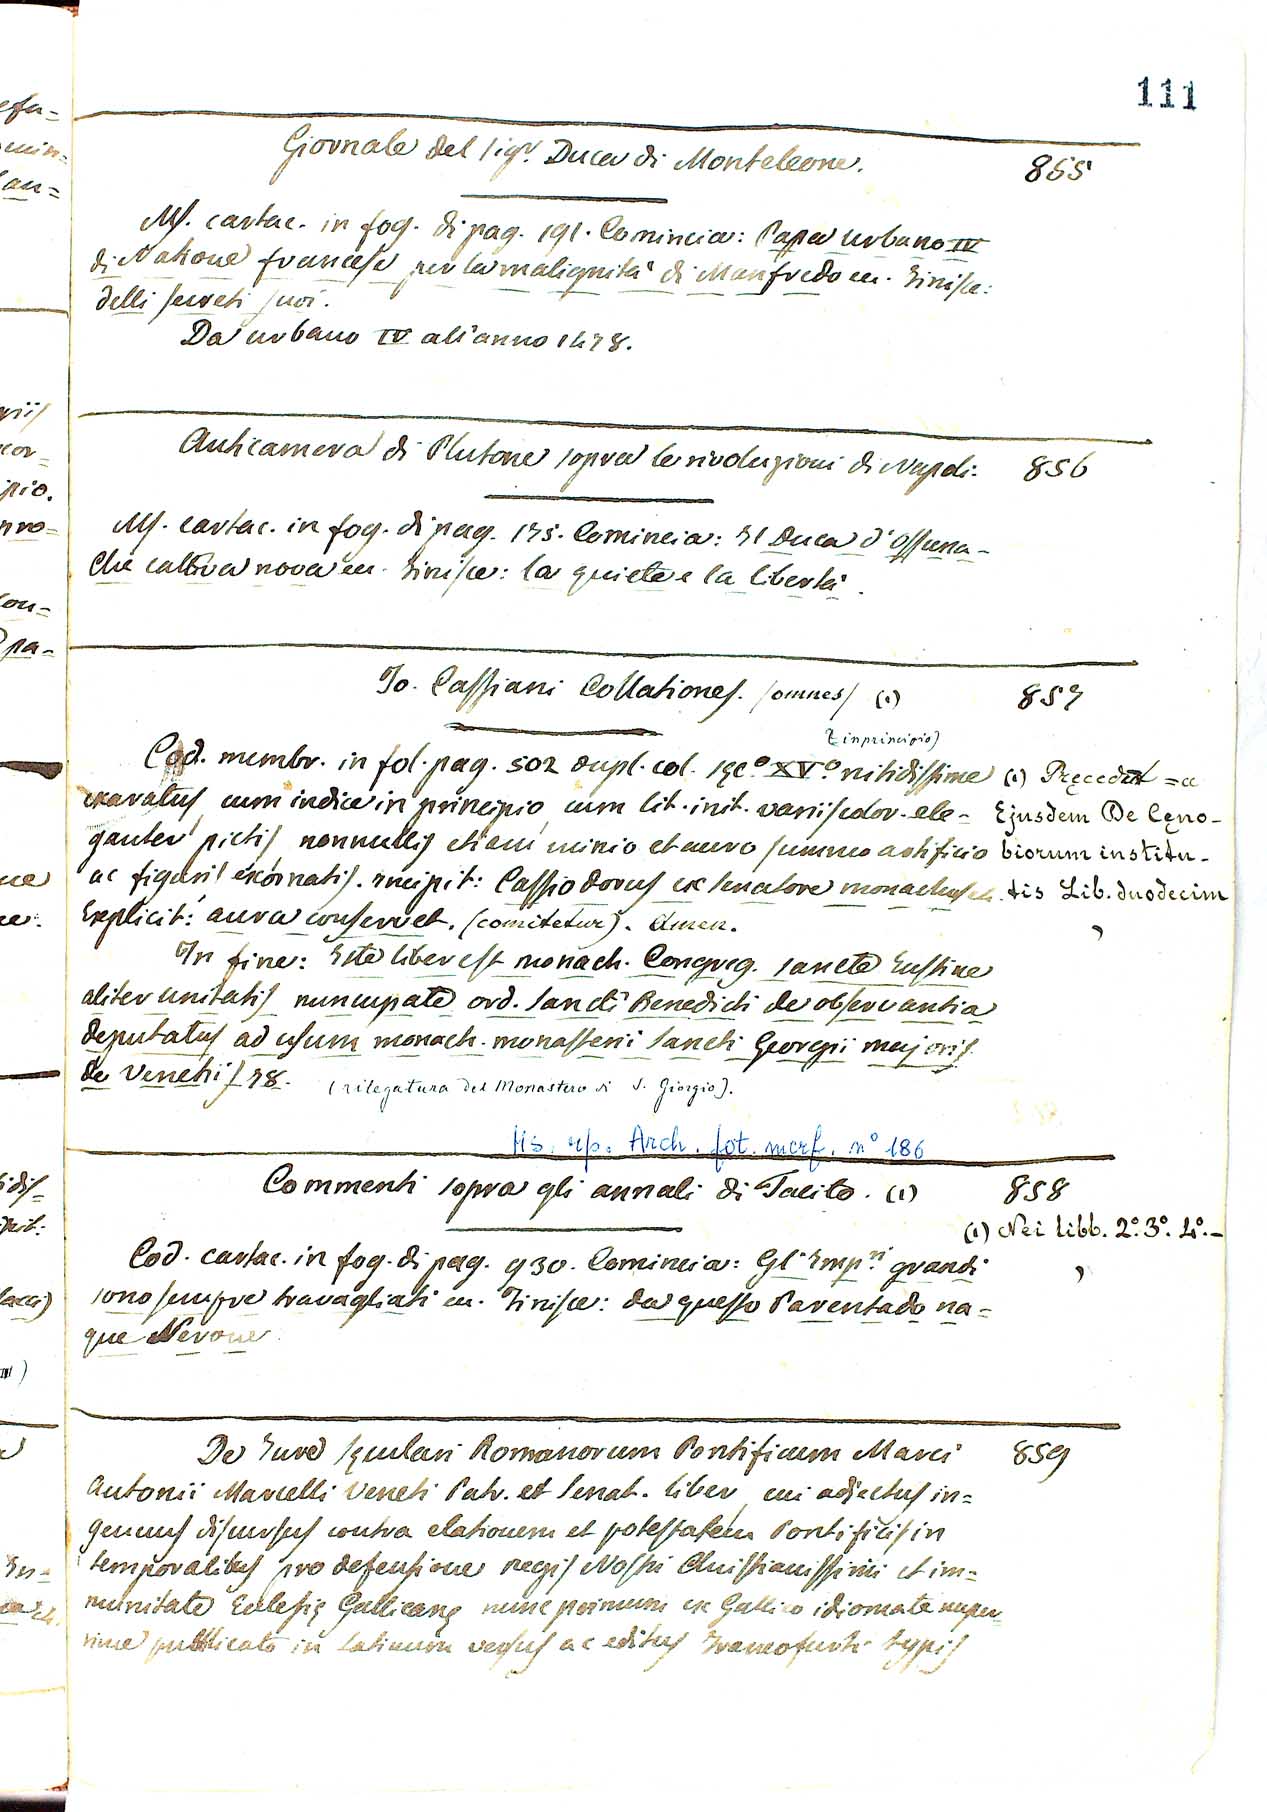 111
Giornale del Sigr. Duca di Monteleone. 855
Ms. cartac. in fog. di pag. 191. Comincia: Papa Urbano IV
di Natione francese per la malignità di Manfredo ec. Finisce:
delli secreti suoi.
Da Urbano IV all'anno 1478.
Anticamera di Plutone sopra le rivoluzioni di Napoli. 856
Ms. cartac. in fog. di pag. 175. Comincia: Il Duca d'Ossuna-
Che cattiva nova ec. Finisce: la quiete e la libertà.
Jo. Cassiani Collationes. /omnes/ (1) 857
(in principio)
Cod. membr. in fol. pag. 502 dupl. col. sęc.º XV.º nitidissime
exaratus, cum indice in principio, cum lit. init. variis color. ele-
ganter pictis, nonnullis etiam minio et auro summo artificio
ac figuris exornatis. Incipit: Cassiodorus ex senatore monachus ec.
Explicit: aura conservet. (comitetur). Amen.
(1) Pręcedit = a
Ejusdem De Cęno-
biorum institu-
tis Lib. duodecim
In fine: Iste liber est monach. Congreg. sancte Iustine
aliter unitatis nuncupate ord. Sancti Benedicti de observantia
deputatus ad usum monach. monasterii Sancti Georgii majoris
de Venetiis 38. (rilegatura del Monastero di S. Giorgio).
Ms. rip. Arch. fot. mcrf. nº 186
Commenti sopra gli annali di Tacito. (1) 858
(1) Nei libb. 2º. 3º. 4º.-
Cod. cartac. in fog. di pag. 930. Comincia: Gl'Impri grandi
sono sempre travagliati ec. Finisce: da questo Parentado na=
que Nerone.
De Iure sęculari Romanorum Pontificum Marci 859
Antonii Marcelli Veneti Patr. et Senat. liber, cui adjectus in=
genuus discursus contra elationem et potestatem Pontificis in
temporalibus pro defensione regis Nostri Christianissimi et im=
munitate Eclesię Gallicanę nunc primum ex Gallico idiomate nuper-
rime publicato in latinum versus ac editus Francofurti typis